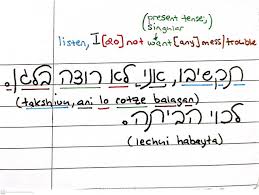 (present tense,
singular
listen, I [do] not want [any] mess/trouble
תקשיבו, אני לא רוצה בלגן.
(takshivu, ani lo rotze balagan)
לכוי הביתה.
(lechni habayta)